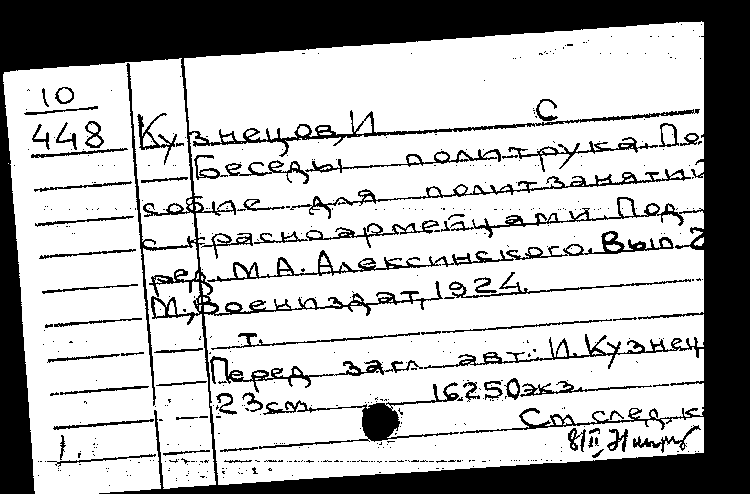 10
448 Кузнецов, И С
Беседы политрука. По-
собие для политзанятий
с красноармейцами. Под
ред. М.А. Алексинского. Вып. 2
М., Воениздат, 1924.
т.
Перед загл авт.: И. Кузнец
23 см. 16250 экз.
См след. к
1. 8/II